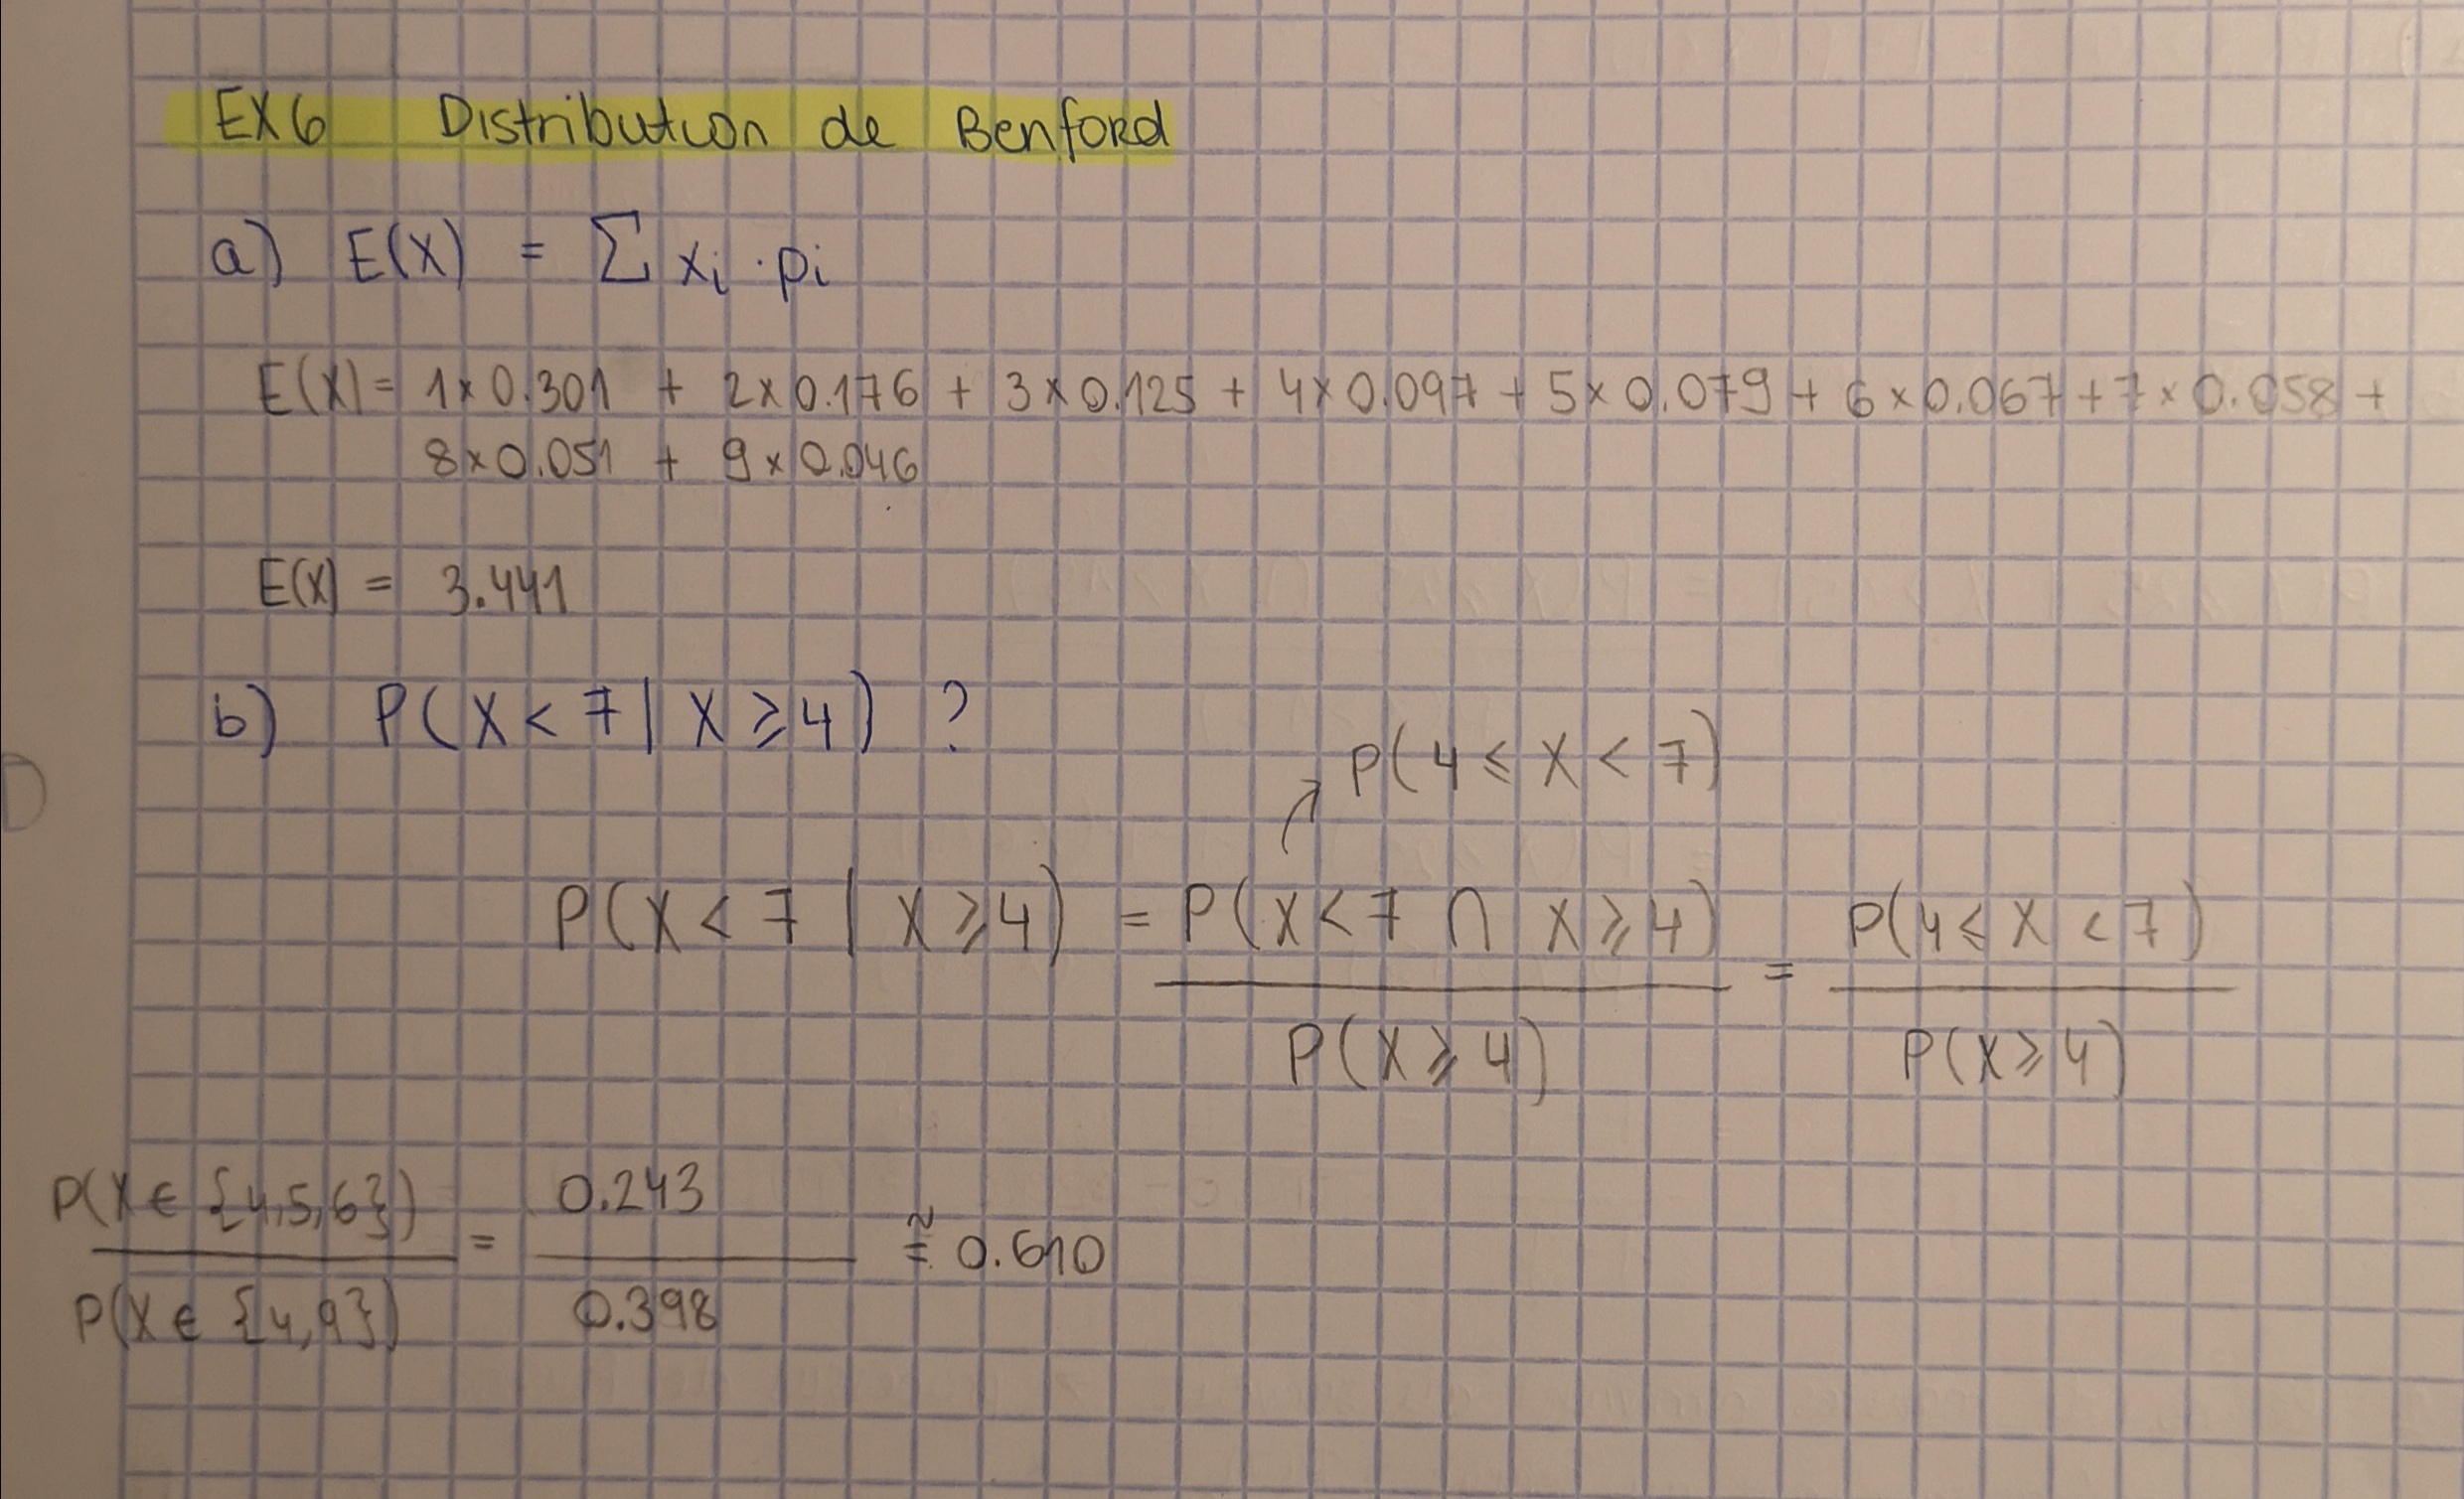 EX6 Distribution de Benford
a) E(X) = Σ xi · pi
E(X) = 1×0.301 + 2×0.176 + 3×0.125 + 4×0.097 + 5×0.079 + 6×0.067 + 7×0.058 +
8×0.051 + 9×0.046
E(X) = 3.441
b) P(X < 7 | X ⩾ 4) ?
P(4 ⩽ X < 7)
P(X < 7 | X ⩾ 4) = P(X < 7 ∩ X ⩾ 4) = P(4 ⩽ X < 7)
P(X ⩾ 4) P(X ⩾ 4)
P(X ∈ {4,5,6}) = 0.243 ≈ 0.610
P(X ∈ {4,9}) 0.398